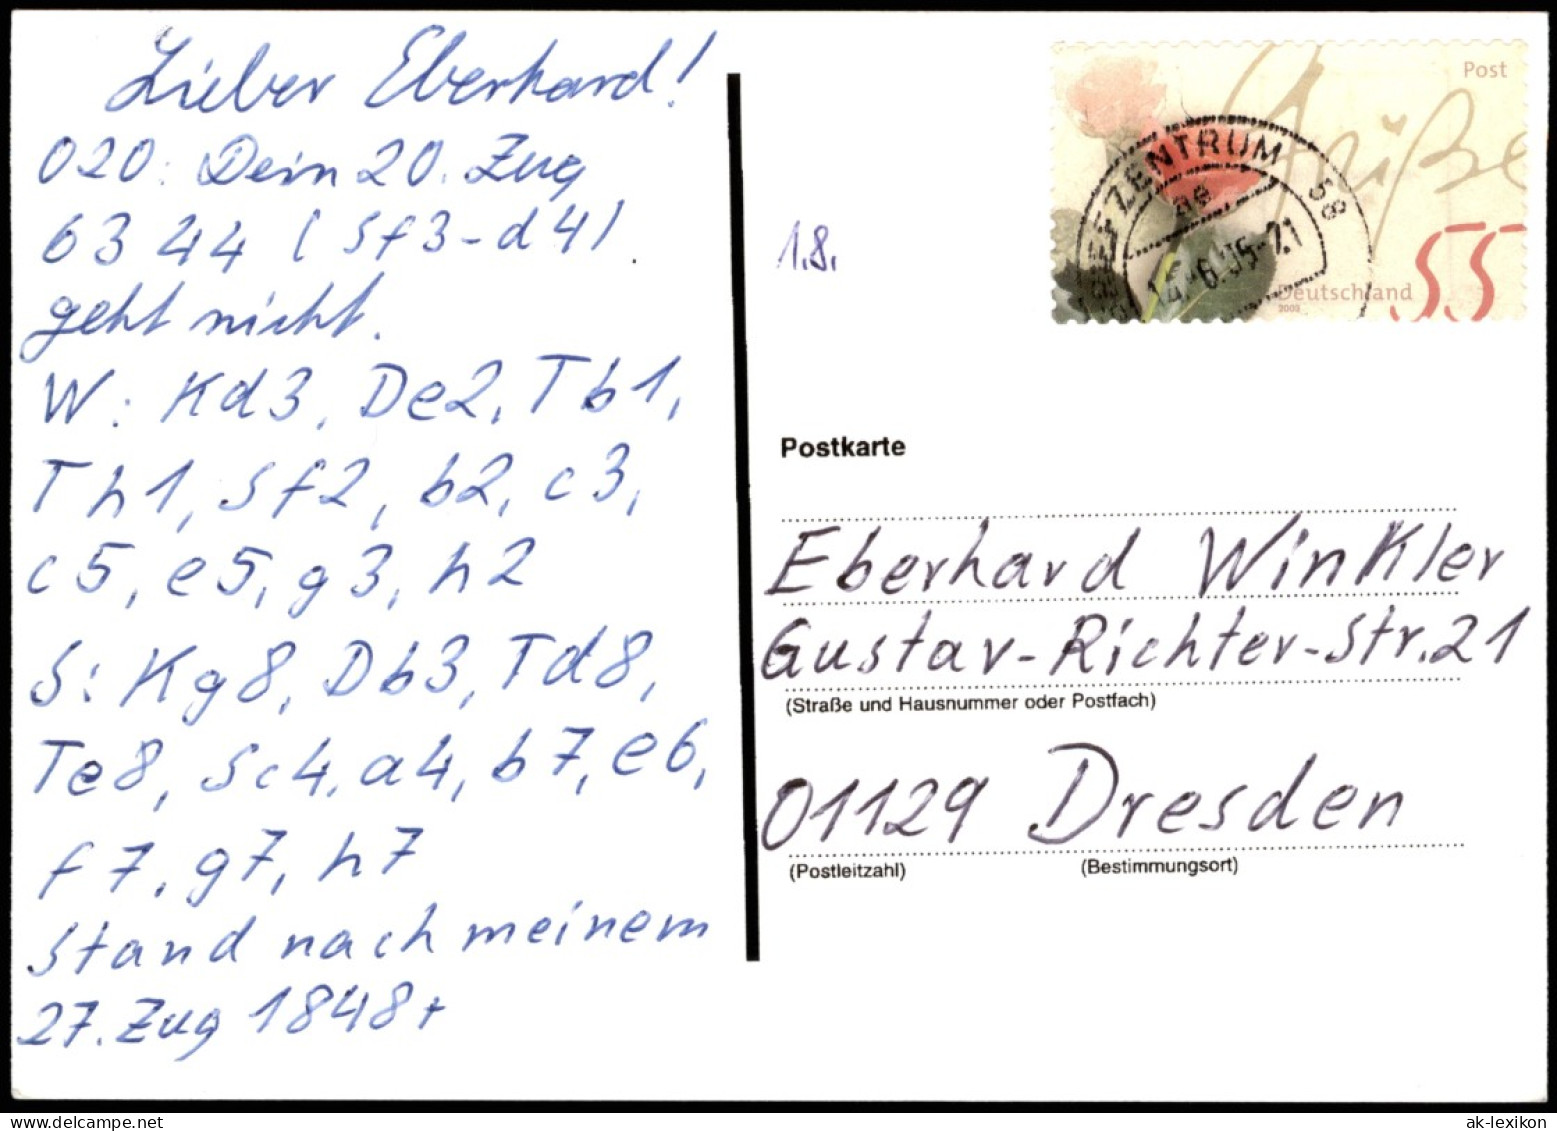 Lieber Eberhard!
020: Dein 20. Zug
6344 (Sf3-d4)
geht nicht.
W: Kd3, De2, Tb1,
Th1, Sf2, b2, c3,
c5, e5, g3, h2
S: Kg8, Db3, Td8,
Te8, Sc4, a4, b7, e6,
f7, g7, h7
Stand nach meinem
27. Zug 1848+
1.8.
Post
Grüße
55
Deutschland
2003
BRIEFZENTRUM 58
ae
14.-6.05-21
Postkarte
Eberhard Winkler
Gustav-Richter-Str. 21
(Straße und Hausnummer oder Postfach)
01129 Dresden
(Postleitzahl) (Bestimmungsort)
ak-lexikon.com